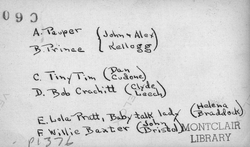 090
A. Pauper (John + Alex
B. Prince Kellogg
C. Tiny Tim (Dan
D. Bob Crachitt (Clyde
Leech)
E. Lola Pratt, Baby talk lady (Helena
Braddock
F. Willie Baxter (John
Bristol)
MONTCLAIR
LIBRARY
P1376